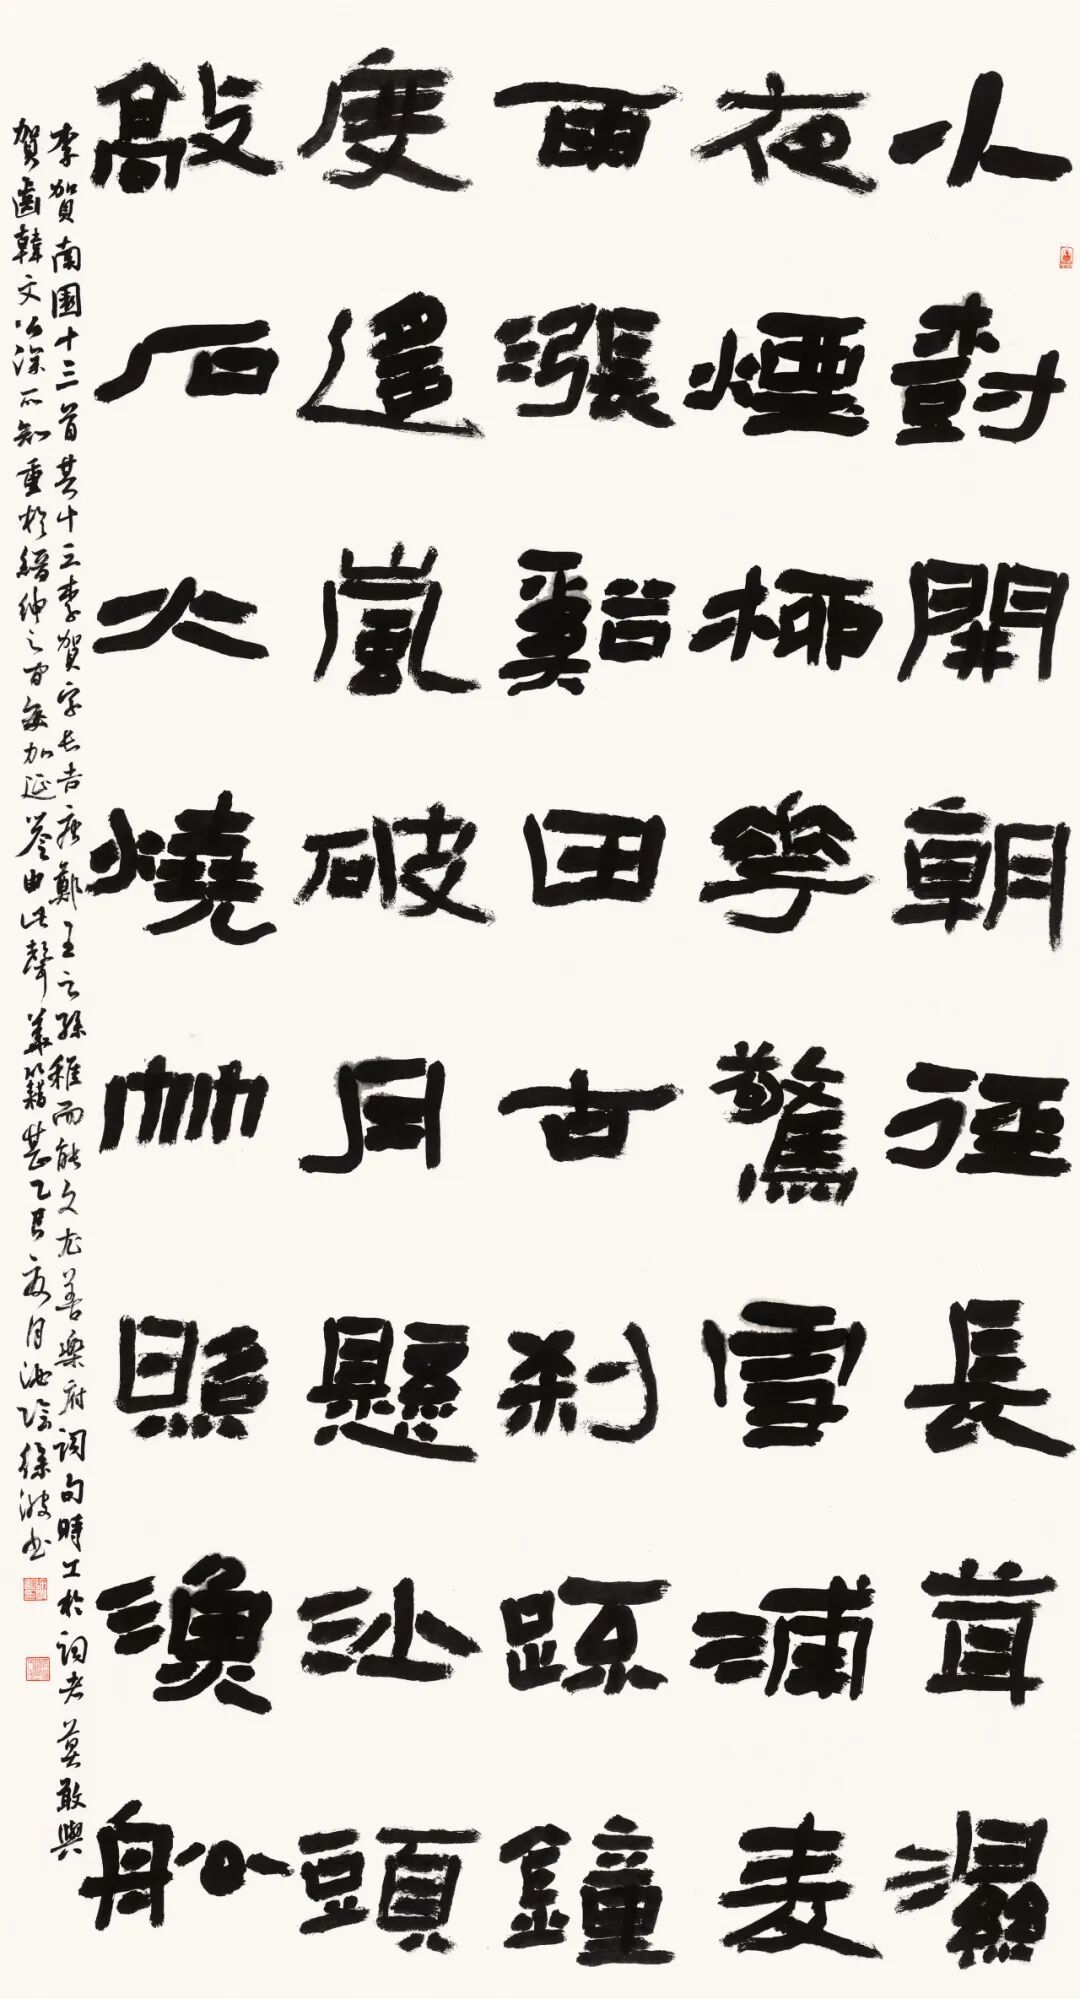 小樹開朝徑長茸濕
夜煙柳花驚雪浦麥
雨漲谿田古剎疏鐘
度遙嵐破月懸沙頭
敲石火燒竹照漁船
李賀南園十三首其十三李賀字長吉唐鄭王之孫稚而能文尤善樂府詞句時工於詞者莫敢與
賀齒韓文公深所知重於縉紳之間每加延譽由此聲華籍甚乙巳夏月陰徐波書